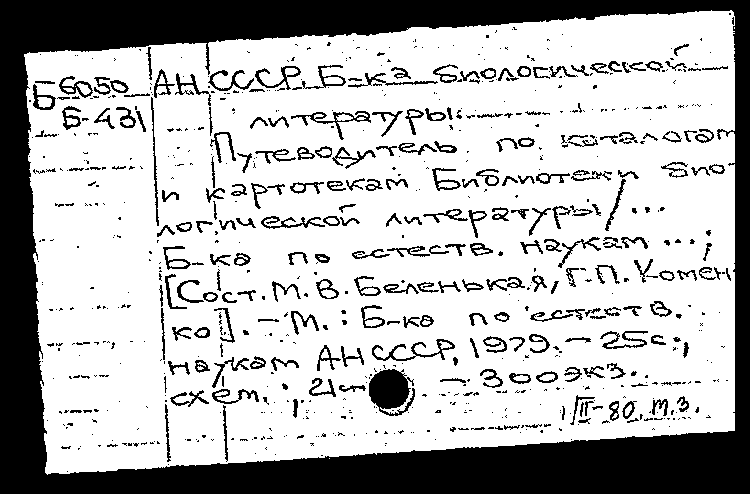 Б6050 АН СССР. Б-ка биологической
Б-431
литературы.
Путеводитель по каталогам
и картотекам Библиотеки био-
логической литературы / ...
Б-ка по естеств. наукам ... ;
[Сост. М. В. Беленькая, Г. П. Комен-
ко]. - М. : Б-ка по естеств.
наукам АН СССР, 1979. - 25 с.,
схем. ; 21 см - 300 экз.
1/II-80. т.з.